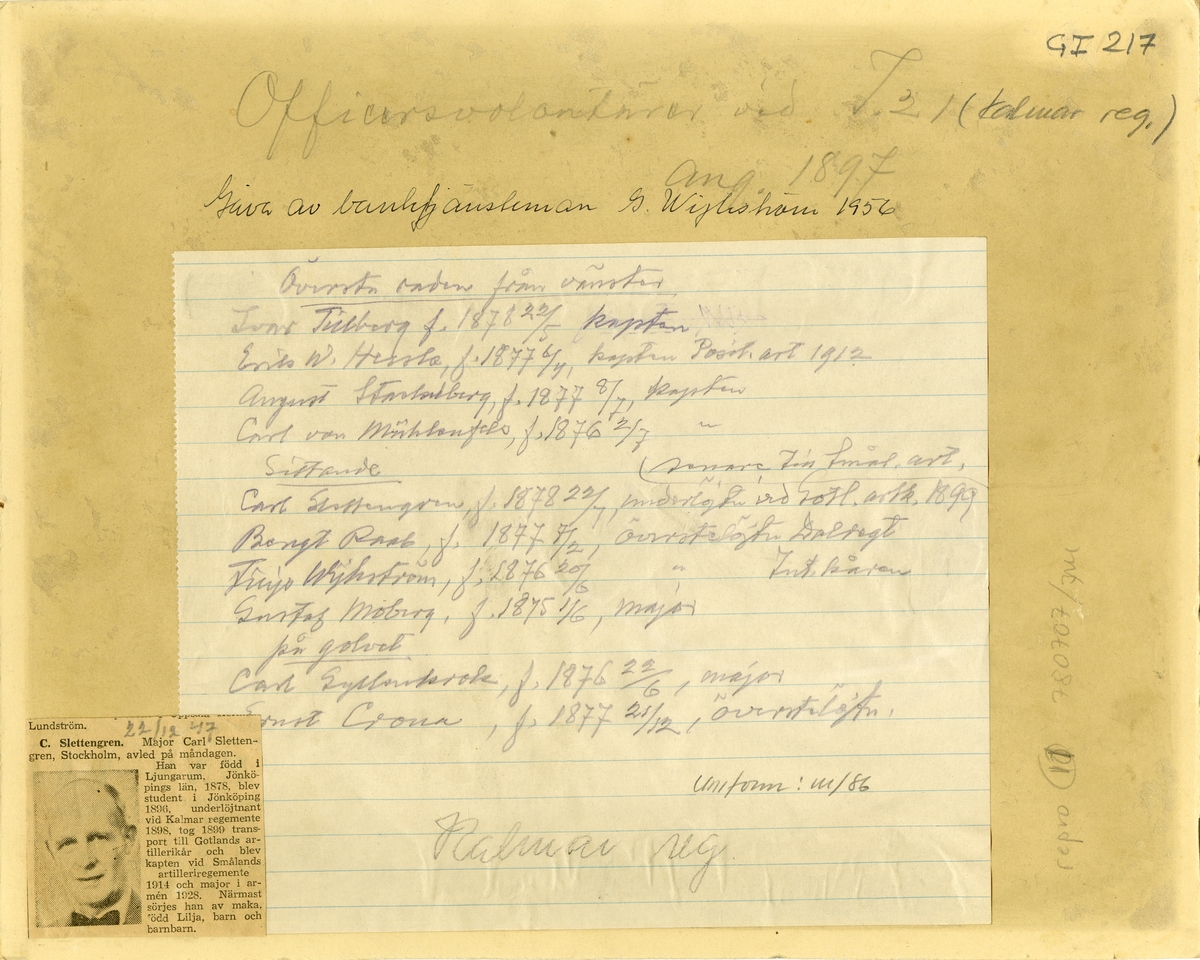 GI 217
Officersvolontärer vid I.21 (Kalmar reg.)
aug. 1897
Gåva av banktjänsteman G. Wijkström 1956
Översta raden från vänster
Ivar Tillberg f. 1878 22/5 kapten
Erik W. f. 1877 6/4, kapten Posit. art 1912
August f. 1877 8/7, kapten
Carl von Mühlenfels, f. 1876 2/7 "
Sittande
(senare vid Smål. art.
Carl Slettengren, f. 1878 22/1, underlöjtn vid Gotl. artk. 1899
Bengt Raab, f. 1877 7/2, överstelöjtn Dalregt
Wijkström, f. 1876 20/6 " Int. kåren
Gustaf Moberg, f. 1875 1/6, major
på golvet
Carl Gyllenkrok, f. 1876 22/6, major
Ernst Crona, f. 1877 21/12, överstelöjtn.
Uniform: m/86
Kalmar reg.
Lundström. 22/12 47
C. Slettengren. Major Carl Sletten-
gren, Stockholm, avled på måndagen.
Han var född i
Ljungarum, Jönkö-
pings län, 1878, blev
student i Jönköping
1896, underlöjtnant
vid Kalmar regemente
1898, tog 1899 trans-
port till Gotlands ar-
tillerikår och blev
kapten vid Smålands
artilleriregemente
1914 och major i ar-
mén 1928. Närmast
sörjes han av maka,
född Lilja, barn och
barnbarn.
780707/